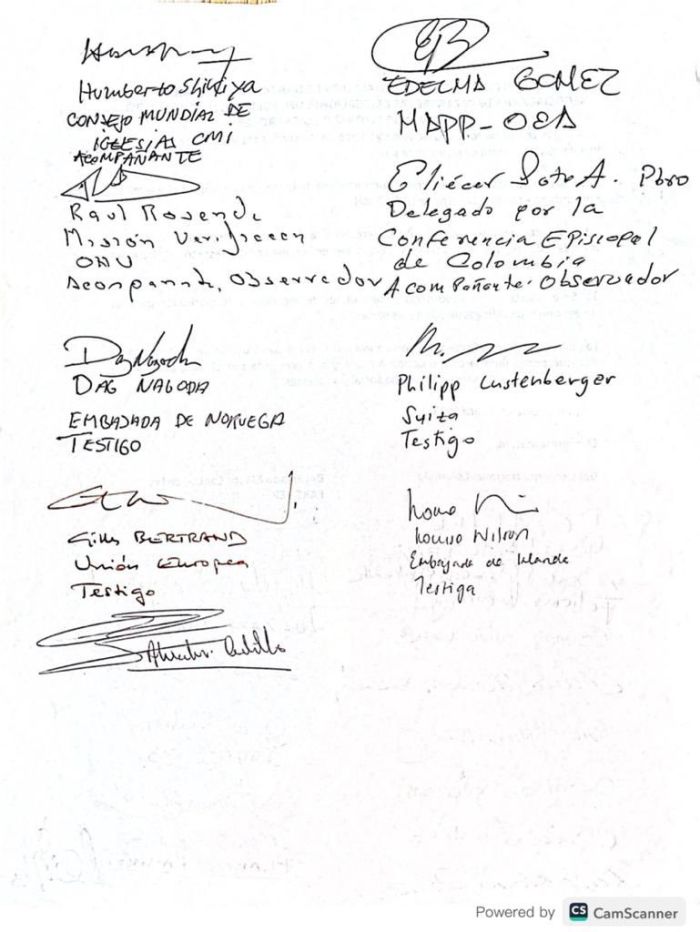 Humberto Shikiya
CONSEJO MUNDIAL DE
IGLESIAS CMI
ACOMPAÑANTE
EDELMA GOMEZ
MAPP-OEA
Raúl Rosende
Misión Verificación
ONU
Acompañante, Observador
Eliécer Soto A. Pbro
Delegado por la
Conferencia Episcopal
de Colombia
Acompañante. Observador
DAG NAGODA
EMBAJADA DE NORUEGA
TESTIGO
Philipp Lustenberger
Suiza
Testigo
Gilles BERTRAND
Unión Europea
Testigo
Embajada de Irlanda
Testiga
Powered by CS CamScanner